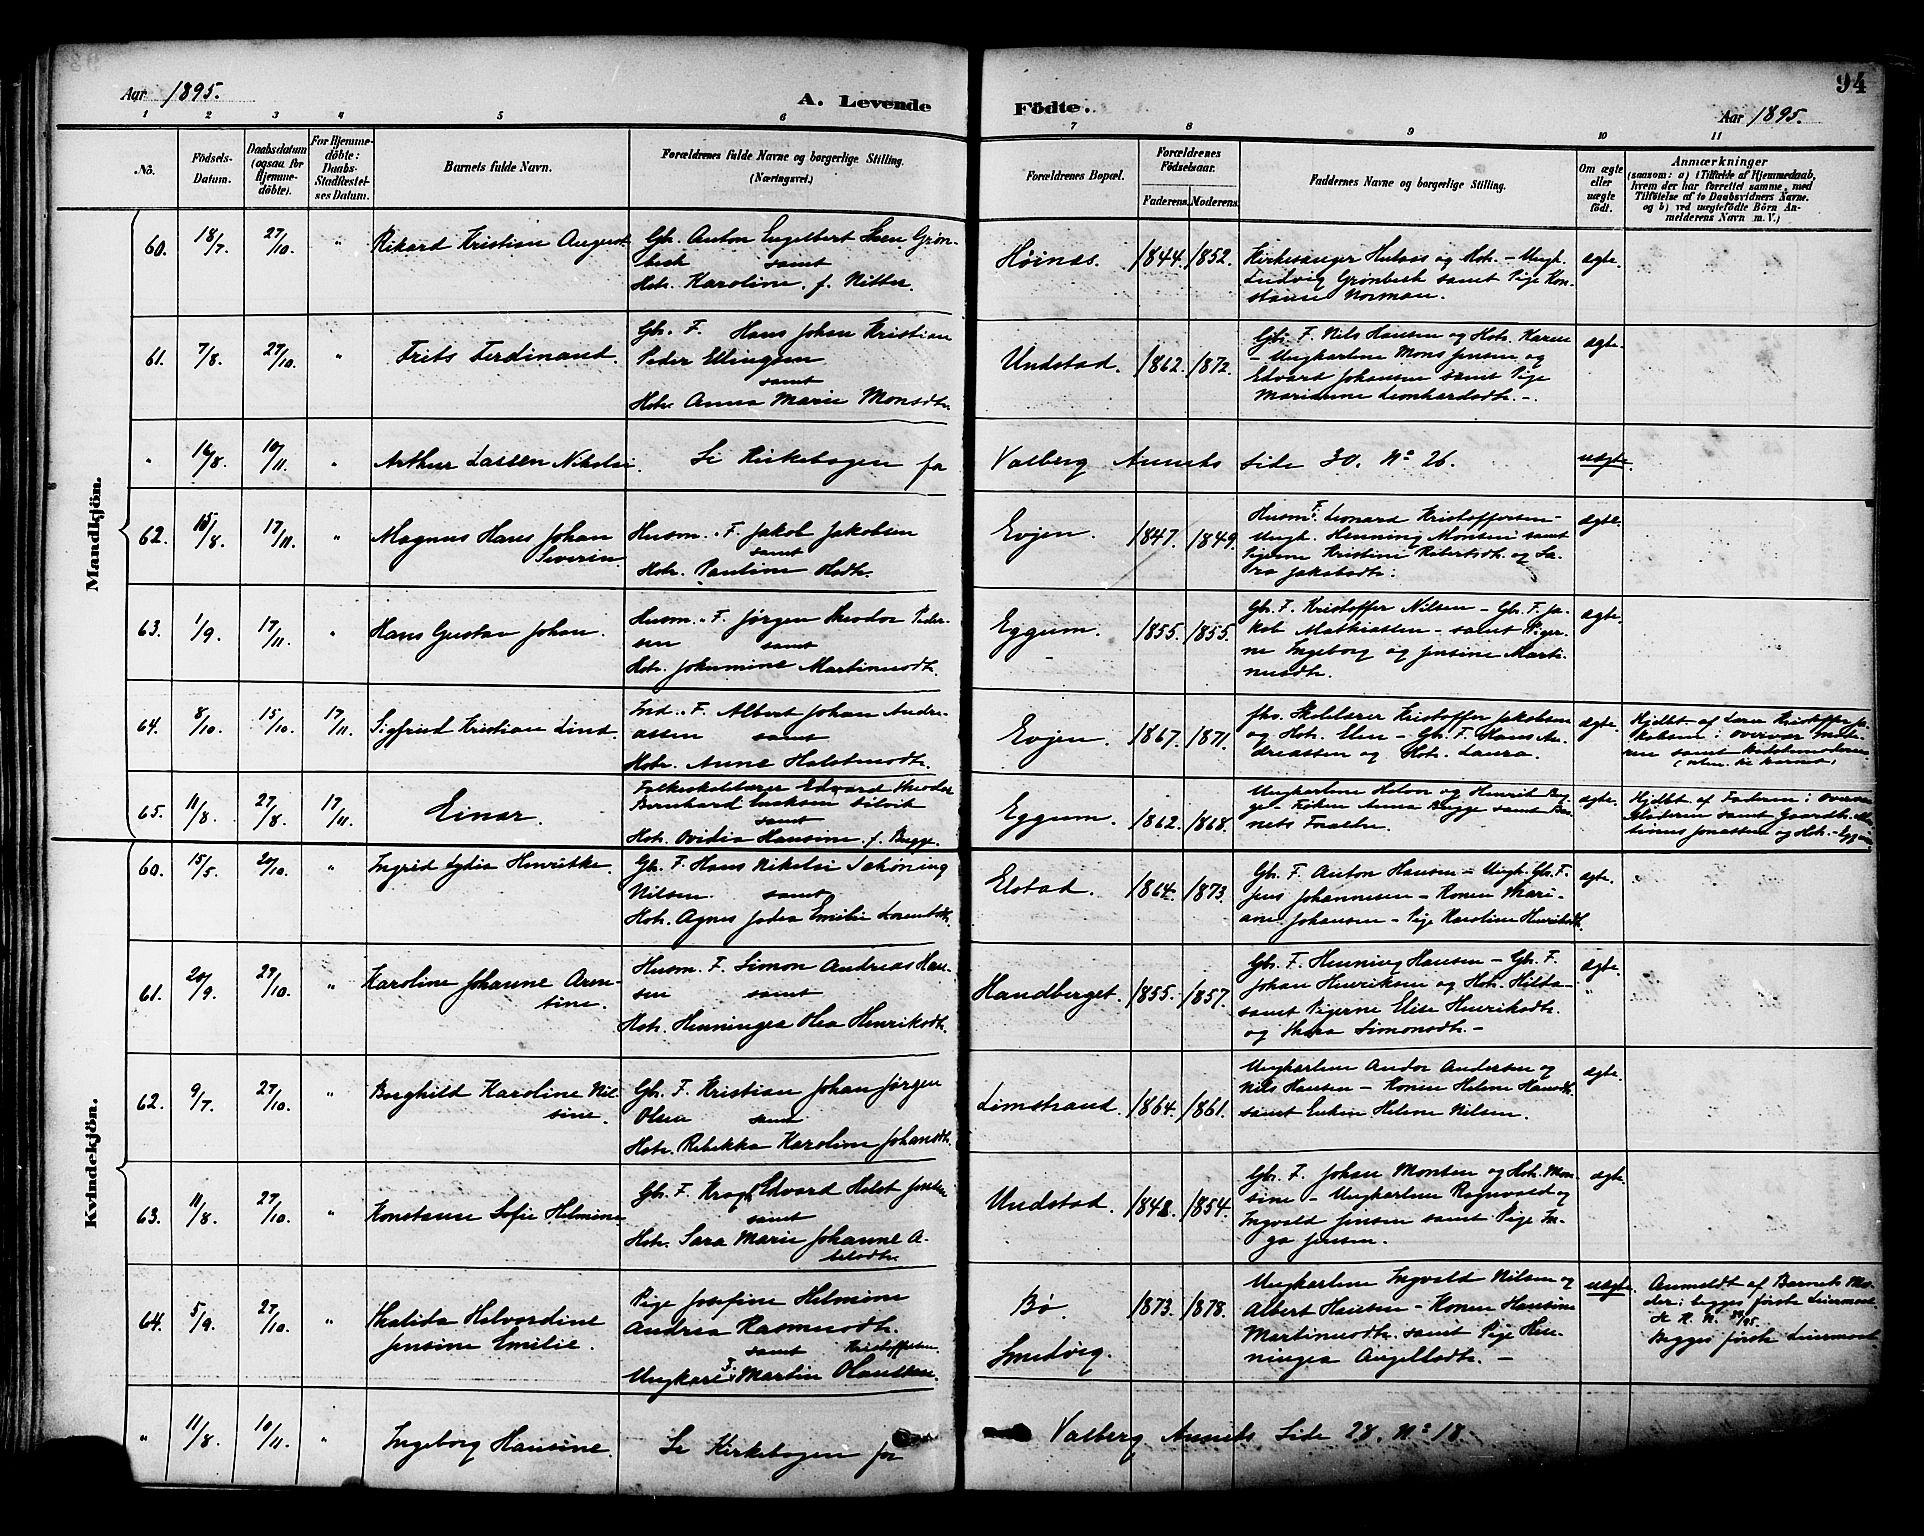 94
Aar 1895.
A. Levende Födte.
Aar 1895.
1 2 3 4 5 6 7 8 9 10 11
No.
Födsels-Datum.
Daabsdatum (ogsaa for Hjemme-döbte).
For Hjemme-döbte: Daabs-Stadfæstel-ses Datum.
Barnets fulde Navn.
Forældrenes fulde Navne og borgerlige Stilling. (Næringsvei.)
Forældrenes Bopæl.
Forældrenes Födselsaar.
Faderens. Moderens.
Faddernes Navne og borgerlige Stilling.
Om ægte eller uægte födt.
Anmærkninger
(saasom: a) i Tilfælde af Hjemmedaab,
hvem der har forrettet samme, med
Tilföielse af to Daabsvidners Navne.
og b) ved uægtefödte Börn An-
melderens Navn m. V.)
Mandkjön.
60. 18/7. 27/10. " Rikard Kristian August
Gbr. Anton Engelbert Steen Grøn-
bech samt
Hstr. Karoline, f. Nitter.
Høinæs. 1844. 1852.
Kirkesanger Hutaas og Hstr. - Ungk.
Ludvig Grønbech samt Pige Kon-
stanse Norman.
ægte.
61. 7/8. 27/10. " Frits Ferdinand.
Gbr. F. Hans Johan Kristian
Peder Ellingsen
samt
Hstr. Anna Marie Monsdtr.
Undstad. 1862. 1872.
Gbr. F. Nils Hansen og Hstr. Karen
- Ungkarlene Mons Jensen og
Edvard Johansen samt Pige
Mariane Leonhardsdtr. -
ægte.
" 16/8. 10/11. " Arthur Lassen Nikolai.
Se Kirkebogen for Valberg Annets Side 30. No 26.
uægte.
62. 15/8. 17/11. " Magnus Hans Johan
Severin.
Husm. F. Jakob Jakobsen
samt
Hstr. Pauline Olsdtr.
Evjen. 1847. 1849.
Husm. F. Leonard Kristoffersen -
Ungk. Henning Monsen samt
Pigerne Kristine Robertsdtr. og Sa-
ra Jakobsdtr.
ægte.
63. 1/9. 17/11. " Hans Gustav Johan.
Husm. F. Jørgen Theodor Peder-
sen samt
Hstr. Johannine Martinusdtr.
Eggum. 1855. 1855.
Gbr. F. Kristoffer Nilsen - Gbr. F. Ja-
kob Mathiassen - samt Piger-
ne Ingeborg og Jensine Marti-
nusdtr.
ægte.
64. 8/10. 15/10. 17/11. Sigfred Kristian Lind.
Ind. F. Albert Johan Andre-
assen samt
Hstr. Anne Halstensdtr.
Evjen. 1867. 1871.
fhv. Skolelærer Kristoffer Jakobsen
og Hstr. Elen - Gbr. F. Hans An-
dreassen og Hstr. Laura.
ægte.
Hjdbt. af Lærer Kristoffer Ja-
kobsen; overvær
65. 11/8. 27/8. 17/11. Einar.
Folkeskolelærer Edvard Theodor
Bernhard
samt
Hstr. Ovidia Hansine f. Bugge.
Eggum. 1862. 1868.
Ungkarlene Halvor og Henrik Bug-
ge, Frøken Anna Bugge samt Bar-
nets Forældre.
ægte.
Hjdbt. af Faderen; overvær
samt Gaardbr.
Jonassen og Hstr. - Eggum.
Kvindekjön.
60. 15/5. 20/10. " Ingrid Lydia Henrikke.
Gbr. F. Hans Nikolai Schøning
Nilsen. samt
Hstr. Agnes Emilie Lorentsdtr.
Elstad. 1864. 1873.
Gbr. F. Anton Hansen - Ungk. Gbr. F.
Jens Johannesen - Konen Mari-
ane Johansen - Pige Karoline Henriksdtr.
ægte.
61. 20/9. 27/10. " Karoline Johanne Aren-
tine.
Husm. F. Simon Andreas Han-
sen samt
Hstr. Henningea Olea Henriksdtr.
Handberget. 1855. 1857.
Gbr. F. Henning Hansen - Gbr. F.
Johan Henriksen og Hstr. Hilda -
samt Pigerne Elise Henriksdtr.
og Thora Simonsdtr. -
ægte.
62. 9/7. 27/10. " Borghild Karoline Nil-
sine.
Gbr. F. Kristian Johan Jørgen
Olsen samt
Hstr. Rebekka Karoline Johansdtr.
Limstrand. 1864. 1861.
Ungkarlene Andor Andersen og
Nils Hansen - Konen Helene Hansdtr.
samt Enken Helene Nilsen.
ægte.
63. 11/8. 27/10. " Konstanse Sofie Helmine
Gbr. F. Kragh Edvard Holst Jensen
samt
Hstr. Sara Marie Johanne A-
belsdtr.
Undstad. 1848. 1854.
Gbr. F. Johan Monsen og Hstr. Mon-
sine - Ungkarlene Ragnvald og
Ingvald Jensen samt Pige In-
ga Jensen.
ægte.
64. 5/9. 27/10. " Thalida Halvordine
Jensine Emilie.
Pige Josefine Helmine
Andrea Rasmusdtr.
samt Kristoffersen
Ungkarl F. Martin
Bø
Smedvig.
1873. 1878.
Ungkarlene Ingvald Nilsen og
Albert Hansen - Konen Hansine
Martinusdtr. samt Pige Hen-
ningea Angellsdtr. -
uægte.
Anmeldt af Barnets Mo-
der; begges første Leiermaal.
Begges første Leiermaal.
" 11/8. 10/11. " Ingeborg Hansine.
Se Kirkebogen for Valberg Annets Side 28. No 18.